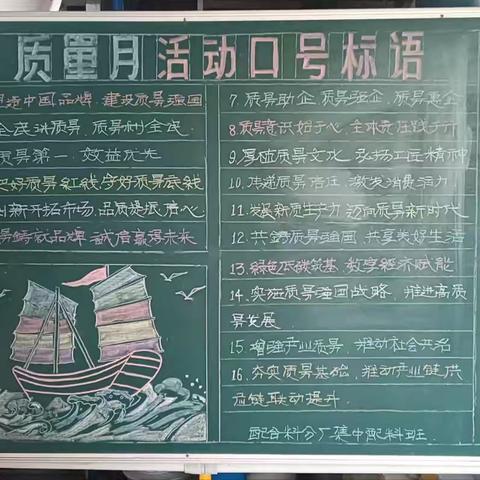 质量月活动口号标语
造中国品牌，建设质量强国
全民讲质量，质量利全民
质量第一，效益优先
把好质量红线，守好质量底线
创新开拓市场，品质提振信心
量铸就品牌，诚信赢得未来
7. 质量助企，质量强企，质量惠企
8 质量意识始于心，全球责任践于行
9. 厚植质量文化，弘扬工匠精神
10. 传递质量信任，激发消费活力
11. 发展新质生产力，迈向质量新时代
12. 共铸质量强国，共享美好生活
13. 绿色低碳筑基，数字经济赋能
14. 实施质量强国战略，推进高质
量发展.
15. 增强产业质量，推动社会共治
16. 夯实质量基础，推动产业链供
应链联动提升.
配合料分厂集中配料班.